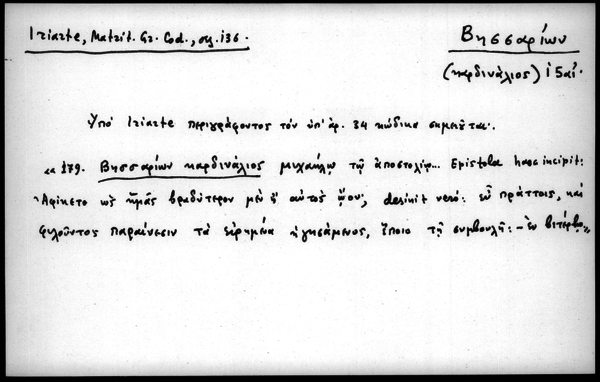 Iriarte, Matrit. Gr. Cod., σελ. 136.
Βησσαρίων
(καρδινάλιος) 15 αἰ.
Ὑπὸ Iriarte περιγράφοντος τὸν ὑπ' ἀρ. 34 κώδικα σημειοῦται.
"179. Βησσαρίων καρδινάλιος μιχαήλῳ τῷ ἀποστολίῳ... Epistola haec incipit:
Ἀφίκετο ὡς ἡμᾶς βραδύτερον μὲν ἢ αὐτὸς ᾤου, desinit vero: εὖ πράττοις, καὶ
φιλοῦντος παραίνεσιν τὰ εἰρημένα ἡγησάμενος, ἕποιο τῇ συμβουλῇ: - ἐν βιτέρβῳ"